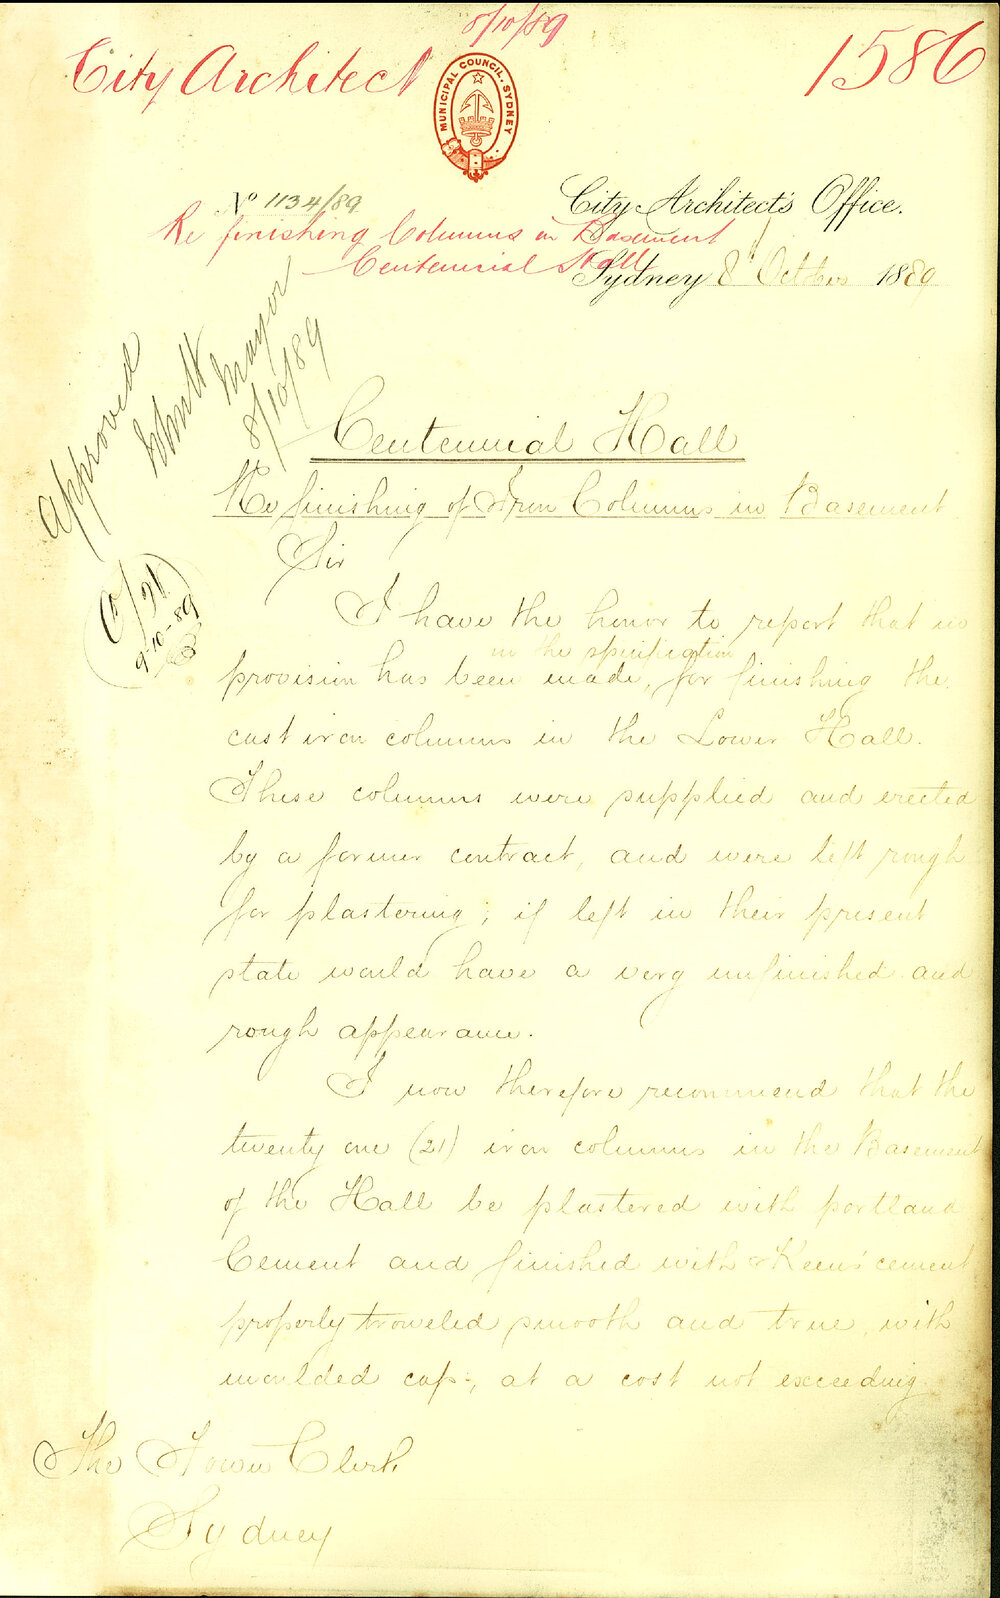 8/10/89
City Architect
1586
MUNICIPAL COUNCIL. SYDNEY
No 1134/89
City Architect's Office.
Re finishing Columns in Basement
Centennial Hall
Sydney 8th October 1889
Approved
Mayor
8/10/89
9-10-89
Centennial Hall
Re finishing of Iron Columns in Basement
Sir
I have the honor to report that no
in the specification
provision has been made, for finishing the
cast iron columns in the Lower Hall.
These columns were supplied and erected
by a former contract, and were left rough
for plastering; if left in their present
state would have a very unfinished and
rough appearance.
I now therefore recommend that the
twenty one (21) iron columns in the Basement
of the Hall be plastered with portland
Cement and finished with Keen's cement
properly troweled smooth and true, with
moulded caps, at a cost not exceeding
The Town Clerk
Sydney